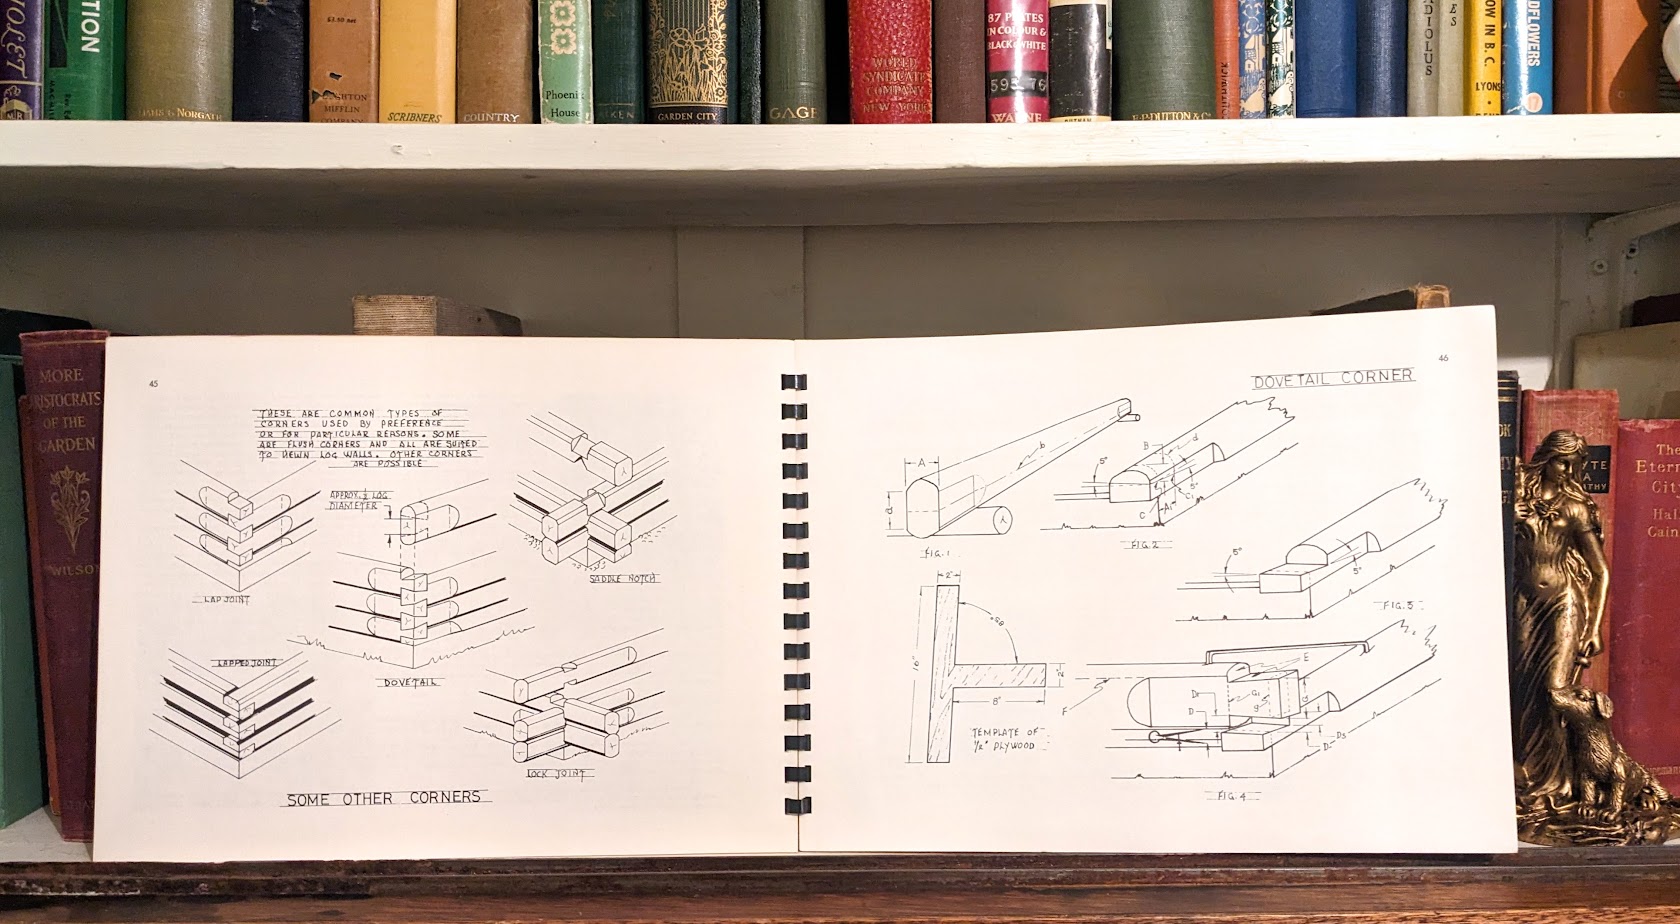 VIOLET
TION
JAMS & NORGATE
$3.50 net
HOUGHTON
MIFFLIN
COMPANY
SCRIBNERS
COUNTRY
Phoenix
House
AIKEN
GARDEN CITY
GAGE
WORLD
SYNDICATE
COMPANY
NEW YORK
87 PLATES
IN COLOUR &
BLACK & WHITE
595 76
WARNE
PUTNAM
E.P. DUTTON & CO
DIOLUS
ES
OW IN B.C.
LYONS
DFLOWERS
17
MORE
ARISTOCRATS
OF THE
GARDEN
WILSON
45
THESE ARE COMMON TYPES OF
CORNERS USED BY PREFERENCE
OR FOR PARTICULAR REASONS. SOME
ARE FLUSH CORNERS AND ALL ARE SUITED
TO HEWN LOG WALLS. OTHER CORNERS
ARE POSSIBLE
APPROX. ½ LOG
DIAMETER
LAP JOINT
SADDLE NOTCH
LAPPED JOINT
DOVETAIL
LOCK JOINT
SOME OTHER CORNERS
46
DOVETAIL CORNER
A
b
d
FIG. 1
5°
B
d
5°
C1
A1
C
FIG. 2
5°
5°
FIG. 3
2"
85°
16"
2"
8"
TEMPLATE OF
½" PLYWOOD
F
E
D1
G1
g
D
D2
D3
FIG. 4
The
Eterna
City
Hall
Caine